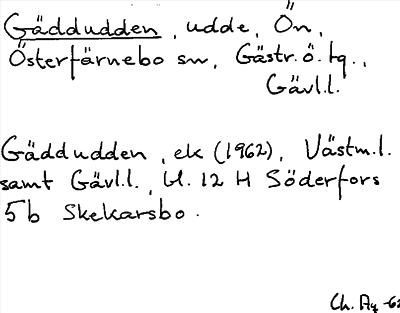 Gäddudden, udde, Ön,
Österfärnebo sn, Gästr. ö. tg.,
Gävl.l.
Gäddudden, ek (1962), Västm.l.
samt Gävl.l., bl. 12 H Söderfors
5b Skekarsbo.
Ch.